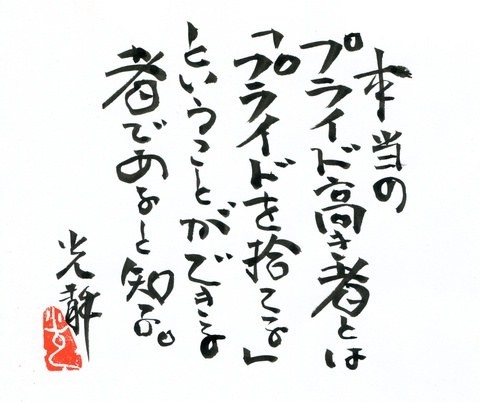 本当の
プライド高き者とは
「プライドを捨てる」
ということができる
者であると知る。
光静